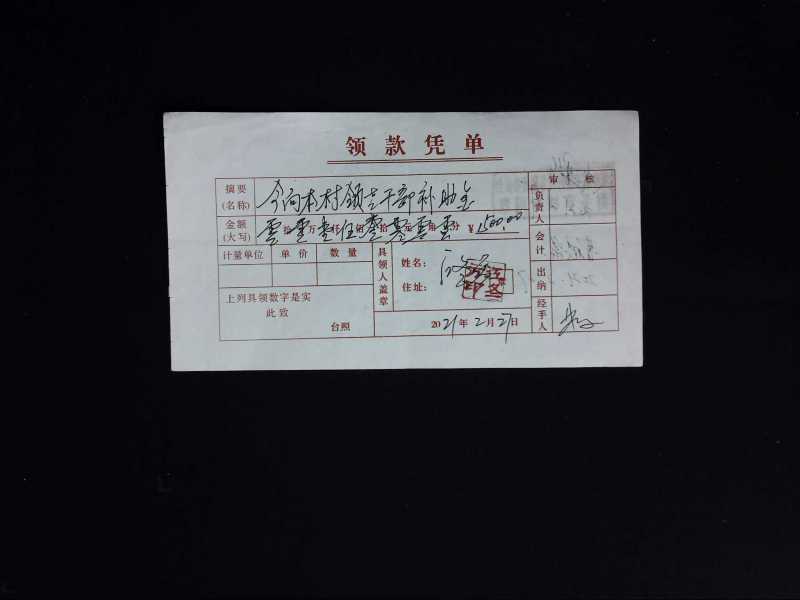 领款凭单
摘要(名称) 今向本村领老干部补助金 审核
金额(大写) 零拾零万壹仟伍佰零拾零元零角零分 ¥1500.00 负责人
计量单位 单价 数量 具领人盖章 姓名： 会计
住址： 出纳
上列具领数字是实
此致
台照 2021年2月27日 经手人